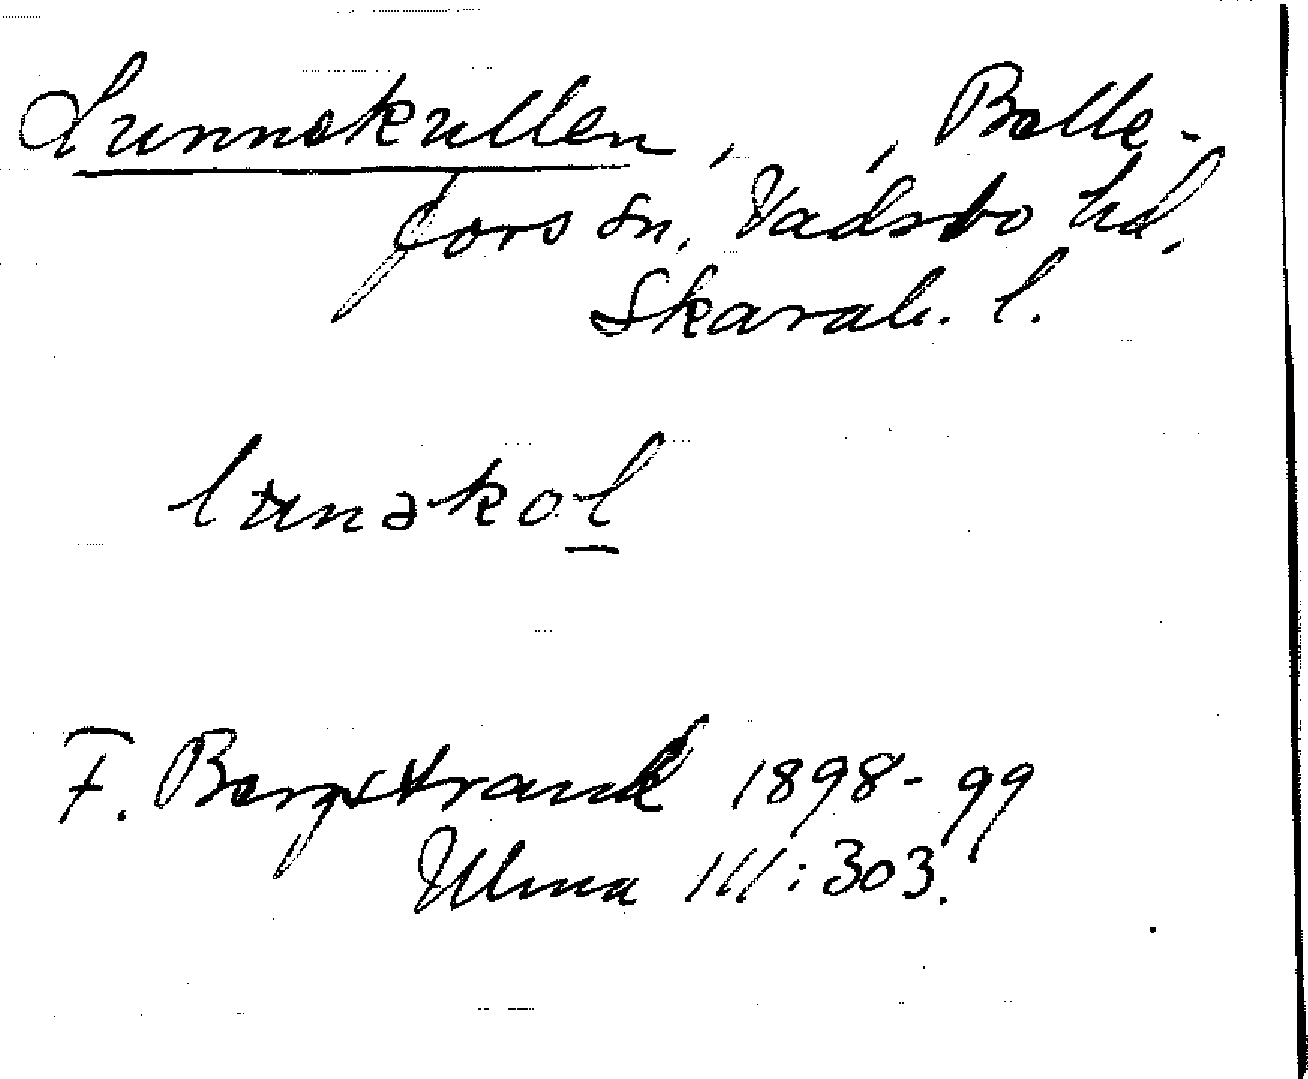 Lunnekullen, , Belle-
fors sn, Vadsbo hd,
Skarab. l.
lunəkol
F. Bergstrand 1898-99
Ulma 111:303.